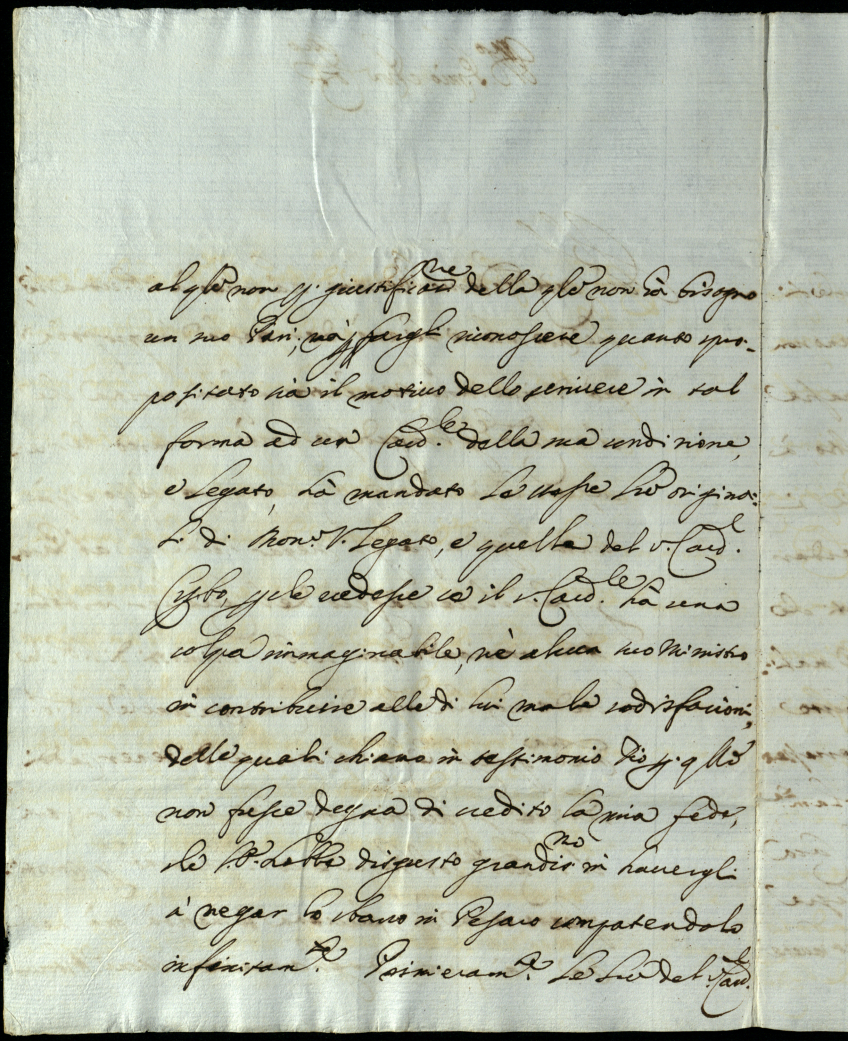 al qle non p. giustificane della qle non hà bisogno
un suo Pari, mà p fargli riconoscere quanto spro-
positato sia il motivo dello scrivere in tal
forma ad un Card.le della sua condizione,
e Legato, hà mandato le stesse lre origina-
li di Mons.r V. Legato, e quelle del s. Card.l
Cybo, p che vedesse se il s. Card.le hà una
colpa immaginabile, nè alcun suo Ministro
in contribuire alle di lui male sodisfazioni,
delle quali chiamo in testimonio Dio p. qllo
non fosse degna di credito la mia fede,
che S.P. hebbe disgusto grandis.mo in havergli
à negar lo sbarco in Pesaro compatendolo
infinitam.te Primieram.te le lre del s. Card.l